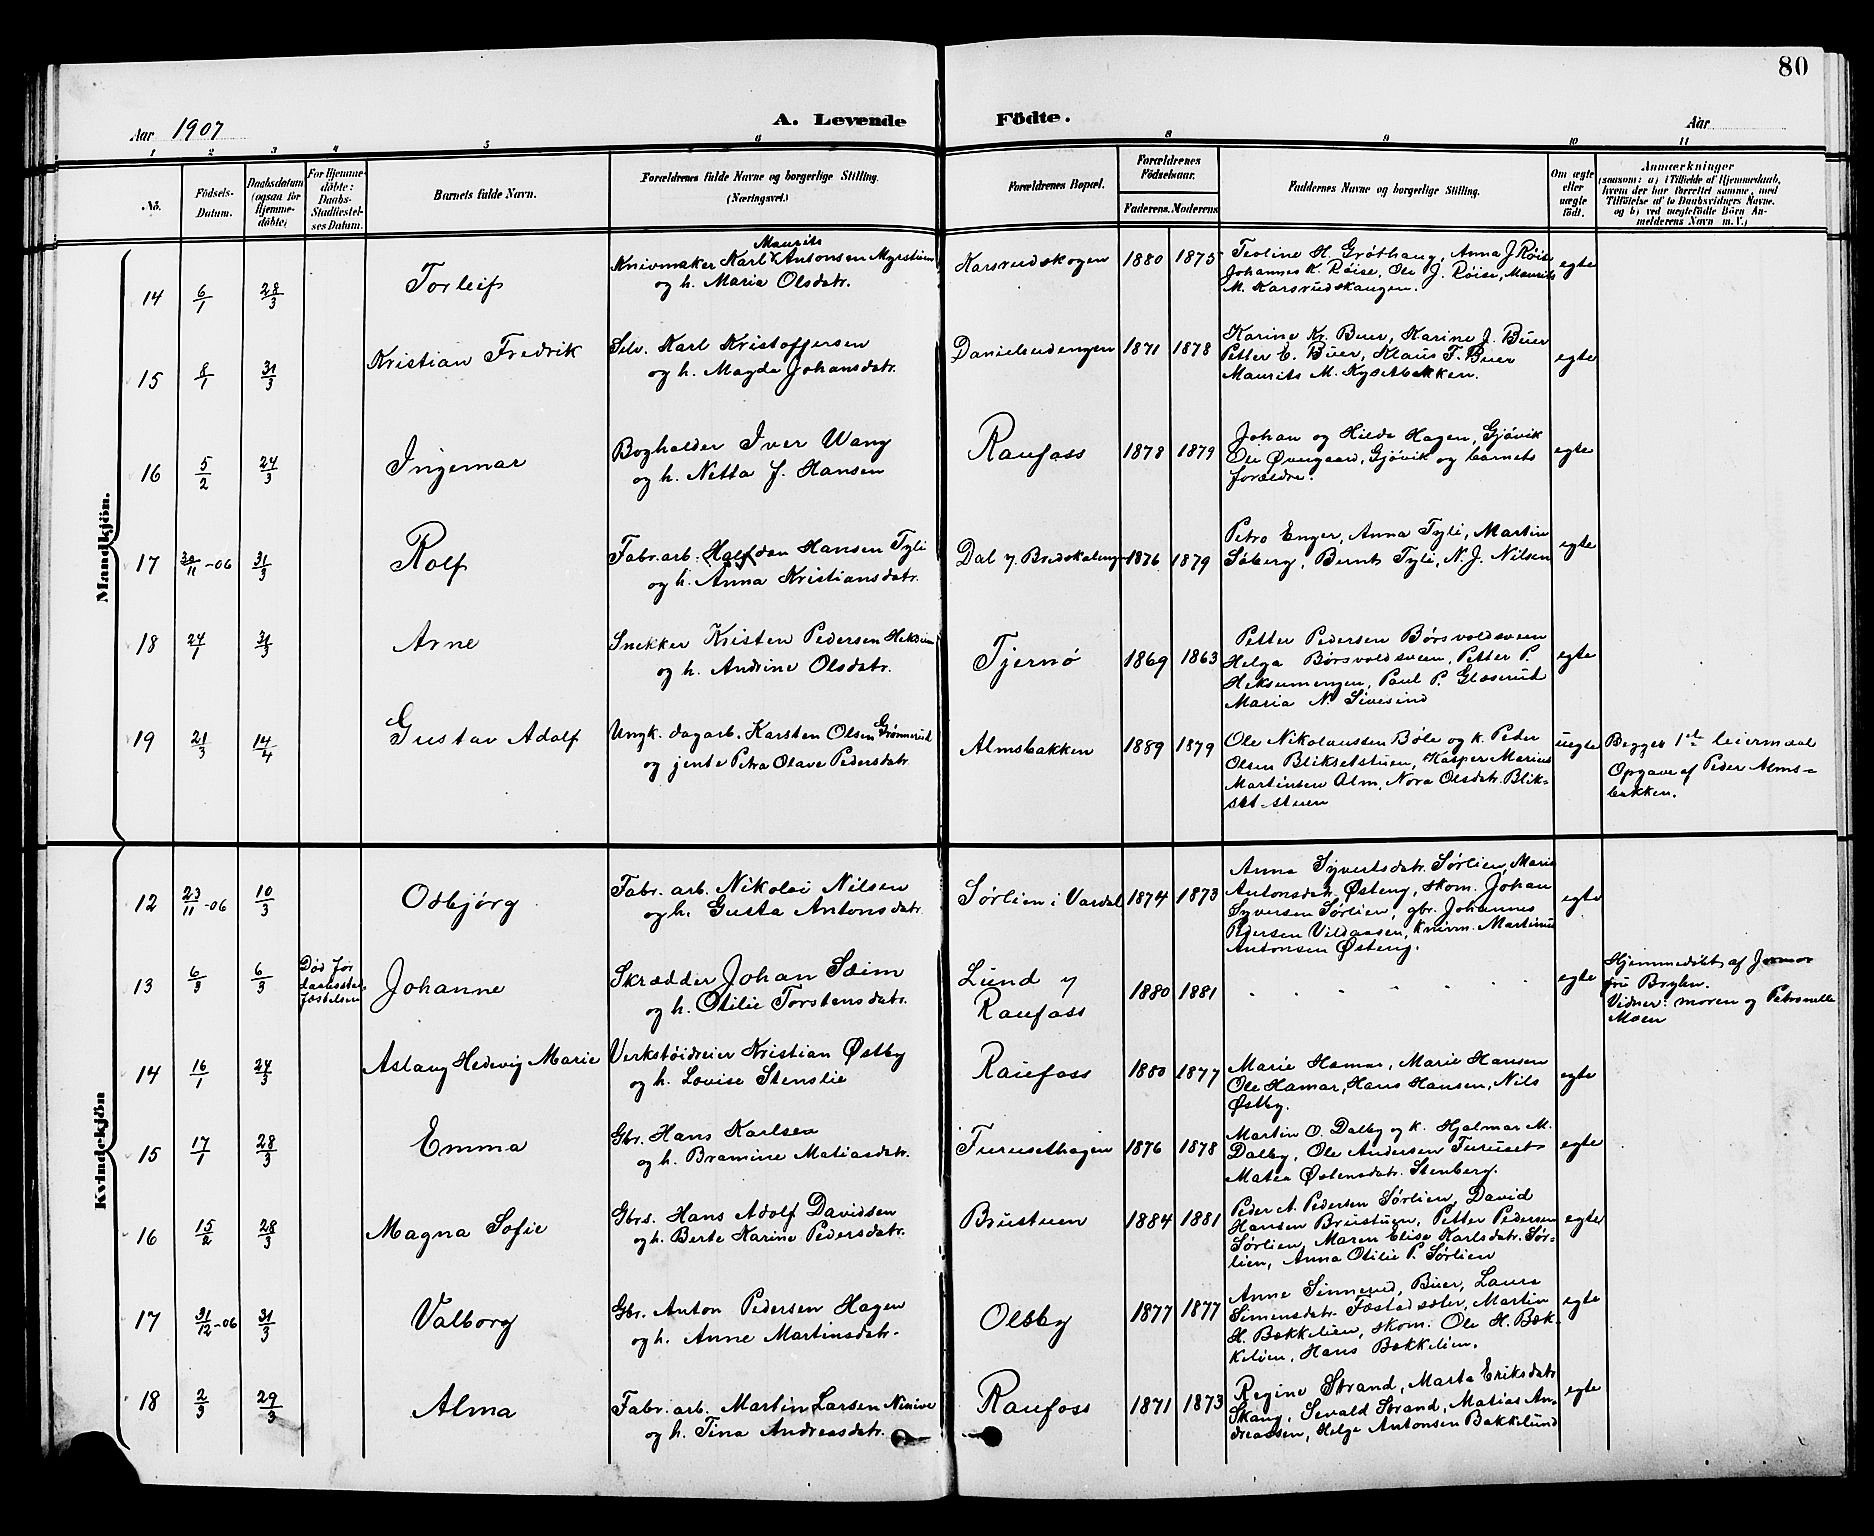 80
Aar 1907
A. Levende
Födte.
Aar
1 2 3 4 5 6 8 9 10 11
No.
Födsels-
Datum.
Daabsdatum
(ogsaa for
Hjemme-
döbte)
For Hjemme-
döbte:
Daabs-
Stadfæstel-
ses Datum.
Barnets fulde Navn.
Forældrenes fulde Navne og borgerlige Stilling.
(Næringsvei.)
Forældrenes Bopæl.
Forældrenes
Födselsaar.
Faderens. Moderens
Faddernes Navne og borgerlige Stilling.
Om ægte
eller
uægte
födt.
Anmærkninger
(saasom: a) i Tilfælde af Hjemmedaab,
hvem der har forrettet samme, med
Tilföielse af to Daabsvidners Navne.
og b) ved uægtefödte Börn An-
melderens Navn m. V.)
Mandkjön.
14 6/1 28/3 Torleif
Knivmaker Karl Maurits Antonsen
og h. Maria Olsdatr.
Karsrudskogen 1880 1875
Teoline H. Grøthaug, Anna J. Røise
Johannes K. Røise, Ole J. Røise, Maurits
M. Karsrudskaugen.
egte
15 8/1 31/3 Kristian Fredrik
Selv. Karl Kristoffersen
og h. Magda Johansdatr.
Danielsudengen 1871 1878
Karine Kr. Buer, Karine J. Buer
Petter E. Buer, Klaus F. Buer
Maurits M. Kysetbakken.
egte
16 5/2 24/3 Ingemar
Bogholder Iver Wang
og h. Netta J. Hansen
Raufoss 1878 1879
Johan og Hilda Hagen, Gjøvik
Ole Øvergaard, Gjøvik og barnets
forældre.
egte
17 30/11-06 31/3 Rolf
Fabr. arb. Halfdan Hansen Tyli
og h. Anna Kristiansdatr.
Dal 1876 1879
Petro Enger, Anna Tyli, Martin
Søberg, Bernt Tyli, N. J. Nilsen
egte
18 24/1 31/3 Arne
Snekker Kristen Pedersen
og h. Andrine Olsdatr.
Tjernø 1869 1863
Petter Pedersen Børsvoldsveen
Helga Børsvoldsveen, Petter P.
Heksumengen, Paul P. Glæserud
Maria N. Sivesind
egte
19 21/3 14/4 Gustav Adolf
Ungk. dagarb. Karsten Olsen Grønnerud
og jente Petra Olave Pedersdatr.
Almsbakken 1889 1879
Ole Nikolaussen Bøle og k. Peder
Olsen Bliksetstuen, Kasper Marius
Martinsen Alm, Nora Olsdatr. Blik-
set-stuen
uegte
Begges 1ste leiermaal
Opgave af Peder Alms-
bakken.
Kvindekjön
12 23/11-06 10/3 Osbjørg
Fabr. arb. Nikolai Nilsen
og h. Gusta Antonsdatr.
Sørlien i Vardal 1874 1873
Anna Syvertsdatr. Sørlien, Marie
Antonsdatr. Østeng, skom. Johan
Syversen Sørlien, gbr. Johannes
Pedersen Vildaasen, knivm. Martinus
Antonsen Østeng.
egte
13 6/3 6/3 Død før
Johanne
Skrædder Johan Sæim
og h. Otilie Torstensdatr.
Lund
Raufoss
1880 1881
egte
Hjemmedøbt af Jormor
fru Brylen.
Vidner: moren og Petronelle
Moen
14 16/1 24/3 Aslaug Hedevig Marie
Verkstøidreier Kristian Østby
og h. Lovise Stenslie
Raufoss 1880 1877
Marie Hamar, Marie Hansen
Ole Hamar, Hans Hansen, Nils
Østby.
egte
15 17/1 28/3 Emma
Gbr. Hans Karlsen
og h. Bramine Matiasdatr.
Furusethagen 1876 1878
Martin O. Dalby og k. Hjalmar M.
Dalby, Ole Andersen Furuset
Matea Østensdatr. Stenberg.
egte
16 15/2 28/3 Magna Sofie
Gbrs. Hans Adolf Davidsen
og h. Berte Karine Pedersdatr.
Brustuen 1884 1881
Peder A. Pedersen Sørlien, David
Hansen Brustuen, Petter Pedersen
Sørlien, Maren Elise Karlsdatr. Sør-
lien, Anna Otilie P. Sørlien
egte
17 31/12-06 31/3 Valborg
Gbr. Anton Pedersen Hagen
og h. Anne Martinsdatr.
Olsby 1877 1877
Anne Sinnerud, Buer, Laura
Simensdatr. Fostadsæter, Martin
H. Bækkelien, skom. Ole H. Bæk-
kelien, Hans Bækkelien.
egte
18 2/3 29/3 Alma
Fabr. arb. Martin Larsen Ninive
og h. Tina Andreasdatr.
Raufoss 1871 1873
Regine Strand, Marta Eriksdatr.
Skaug, Sevald Strand, Matias An-
dreassen, Helge Antonsen Bakkelund
egte